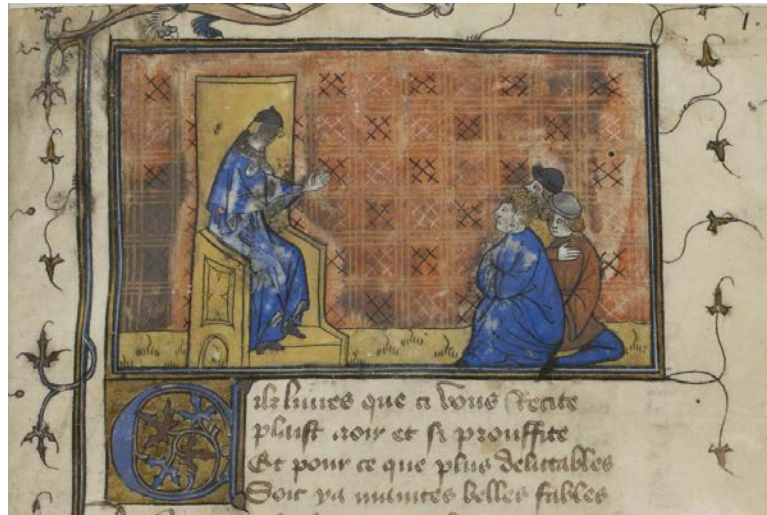 1.
Cilz liures que ci vous Recite
plaist aoir et si prouffite
Et pour ce que plus delittables
Soit ya maintes belles fables